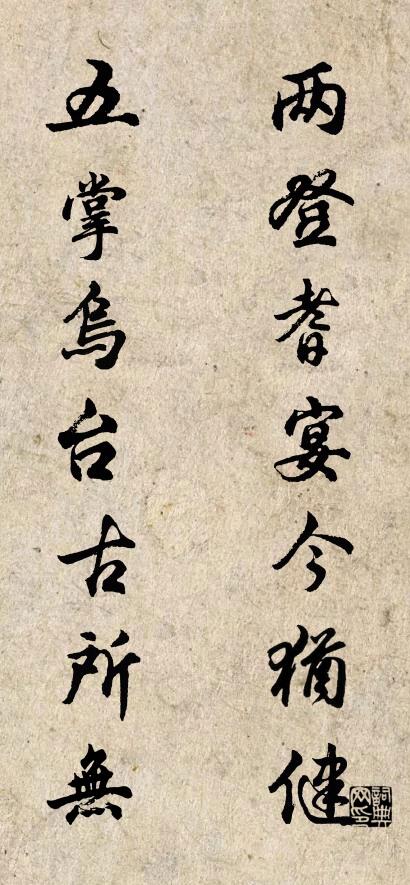 两登耆宴今猶健
五掌烏台古所無
詞典網印